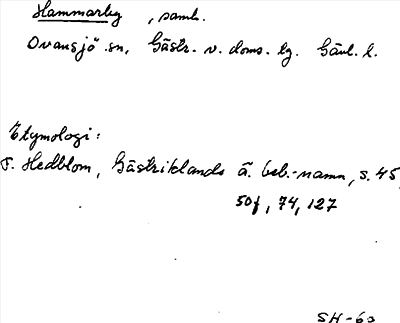 Hammarby , saml.
Ovansjö sn, Gästr. v. doms. tg. Gävl. l.
Etymologi:
F. Hedblom, Gästriklands ä. beb.-namn, s. 45,
50f, 74, 127
SH-60